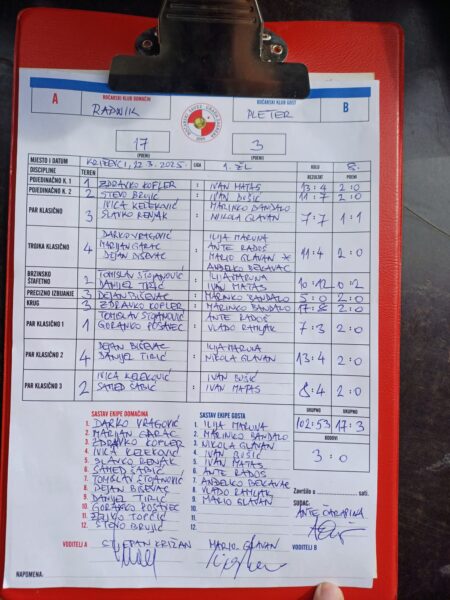 A
BOĆARSKI KLUB DOMAĆINI
RADNIK
BOĆARSKI KLUB GOST
PLETER
B
17
(POENI)
3
(POENI)
MJESTO I DATUM KRIŽEVCI, 22.3.2025. LIGA 1. ŽL KOLU 8.
DISCIPLINE TEREN REZULTAT POENI
POJEDINAČNO K. 1 1 ZDRAVKO KOPLER : IVAN MATAS 13:4 2:0
POJEDINAČNO K. 2 2 STEVO BRUJIĆ : IVAN BUŠIĆ 11:7 2:0
PAR KLASIČNO 3 IVICA KELEKOVIĆ : MARINKO BANDALO 7:7 1:1
SLAVKO RENJAK NIKOLA GLAVAN
TROJKA KLASIČNO 4 DARKO VRAGOVIĆ : ILIJA MARUNA 11:4 2:0
MARIJAN GARAC ANTE RADOŠ
DEJAN BIŠEVAC MARIO GLAVAN
ANĐELKO BEKAVAC
BRZINSKO ŠTAFETNO 2 TOMISLAV STOJANOVIĆ : ILIJA MARUNA 10:12 0:2
DANIJEL TIRIĆ IVAN MATAS
PRECIZNO IZBIJANJE 3 DEJAN BIŠEVAC : MARINKO BANDALO 5:0 2:0
KRUG 3 ZDRAVKO KOPLER : MARINKO BANDALO 17:8 2:0
PAR KLASIČNO 1 1 TOMISLAV STOJANOVIĆ : ANTE RADOŠ 7:3 2:0
GORANKO POSAVEC VLADO RAMLJAK
PAR KLASIČNO 2 4 DEJAN BIŠEVAC : ILIJA MARUNA 13:4 2:0
DANIJEL TIRIĆ NIKOLA GLAVAN
PAR KLASIČNO 3 2 IVICA KELEKOVIĆ : IVAN BUŠIĆ 8:4 2:0
SAMED SABIĆ IVAN MATAS
SASTAV EKIPE DOMAĆINA
1. DARKO VRAGOVIĆ
2. MARIJAN GARAC
3. ZDRAVKO KOPLER
4. IVICA KELEKOVIĆ
5. SLAVKO RENJAK
6. SAMED SABIĆ
7. TOMISLAV STOJANOVIĆ
8. DEJAN BIŠEVAC
9. DANIJEL TIRIĆ
10. GORANKO POSAVEC
11. TOPČIĆ
12. STEVO BRUJIĆ
SASTAV EKIPE GOSTA
1. ILIJA MARUNA
2. MARINKO BANDALO
3. NIKOLA GLAVAN
4. IVAN BUŠIĆ
5. IVAN MATAS
6. ANTE RADOŠ
7. ANĐELKO BEKAVAC
8. VLADO RAMLJAK
9. MARIO GLAVAN
10.
11.
12.
UKUPNO UKUPNO
102:53 17:3
BODOVI
3:0
Završilo u sati.
SUDAC:
ANTE ČARAPINA
VODITELJ A STJEPAN KRIŽAN MARIO GLAVAN VODITELJ B
NAPOMENA: